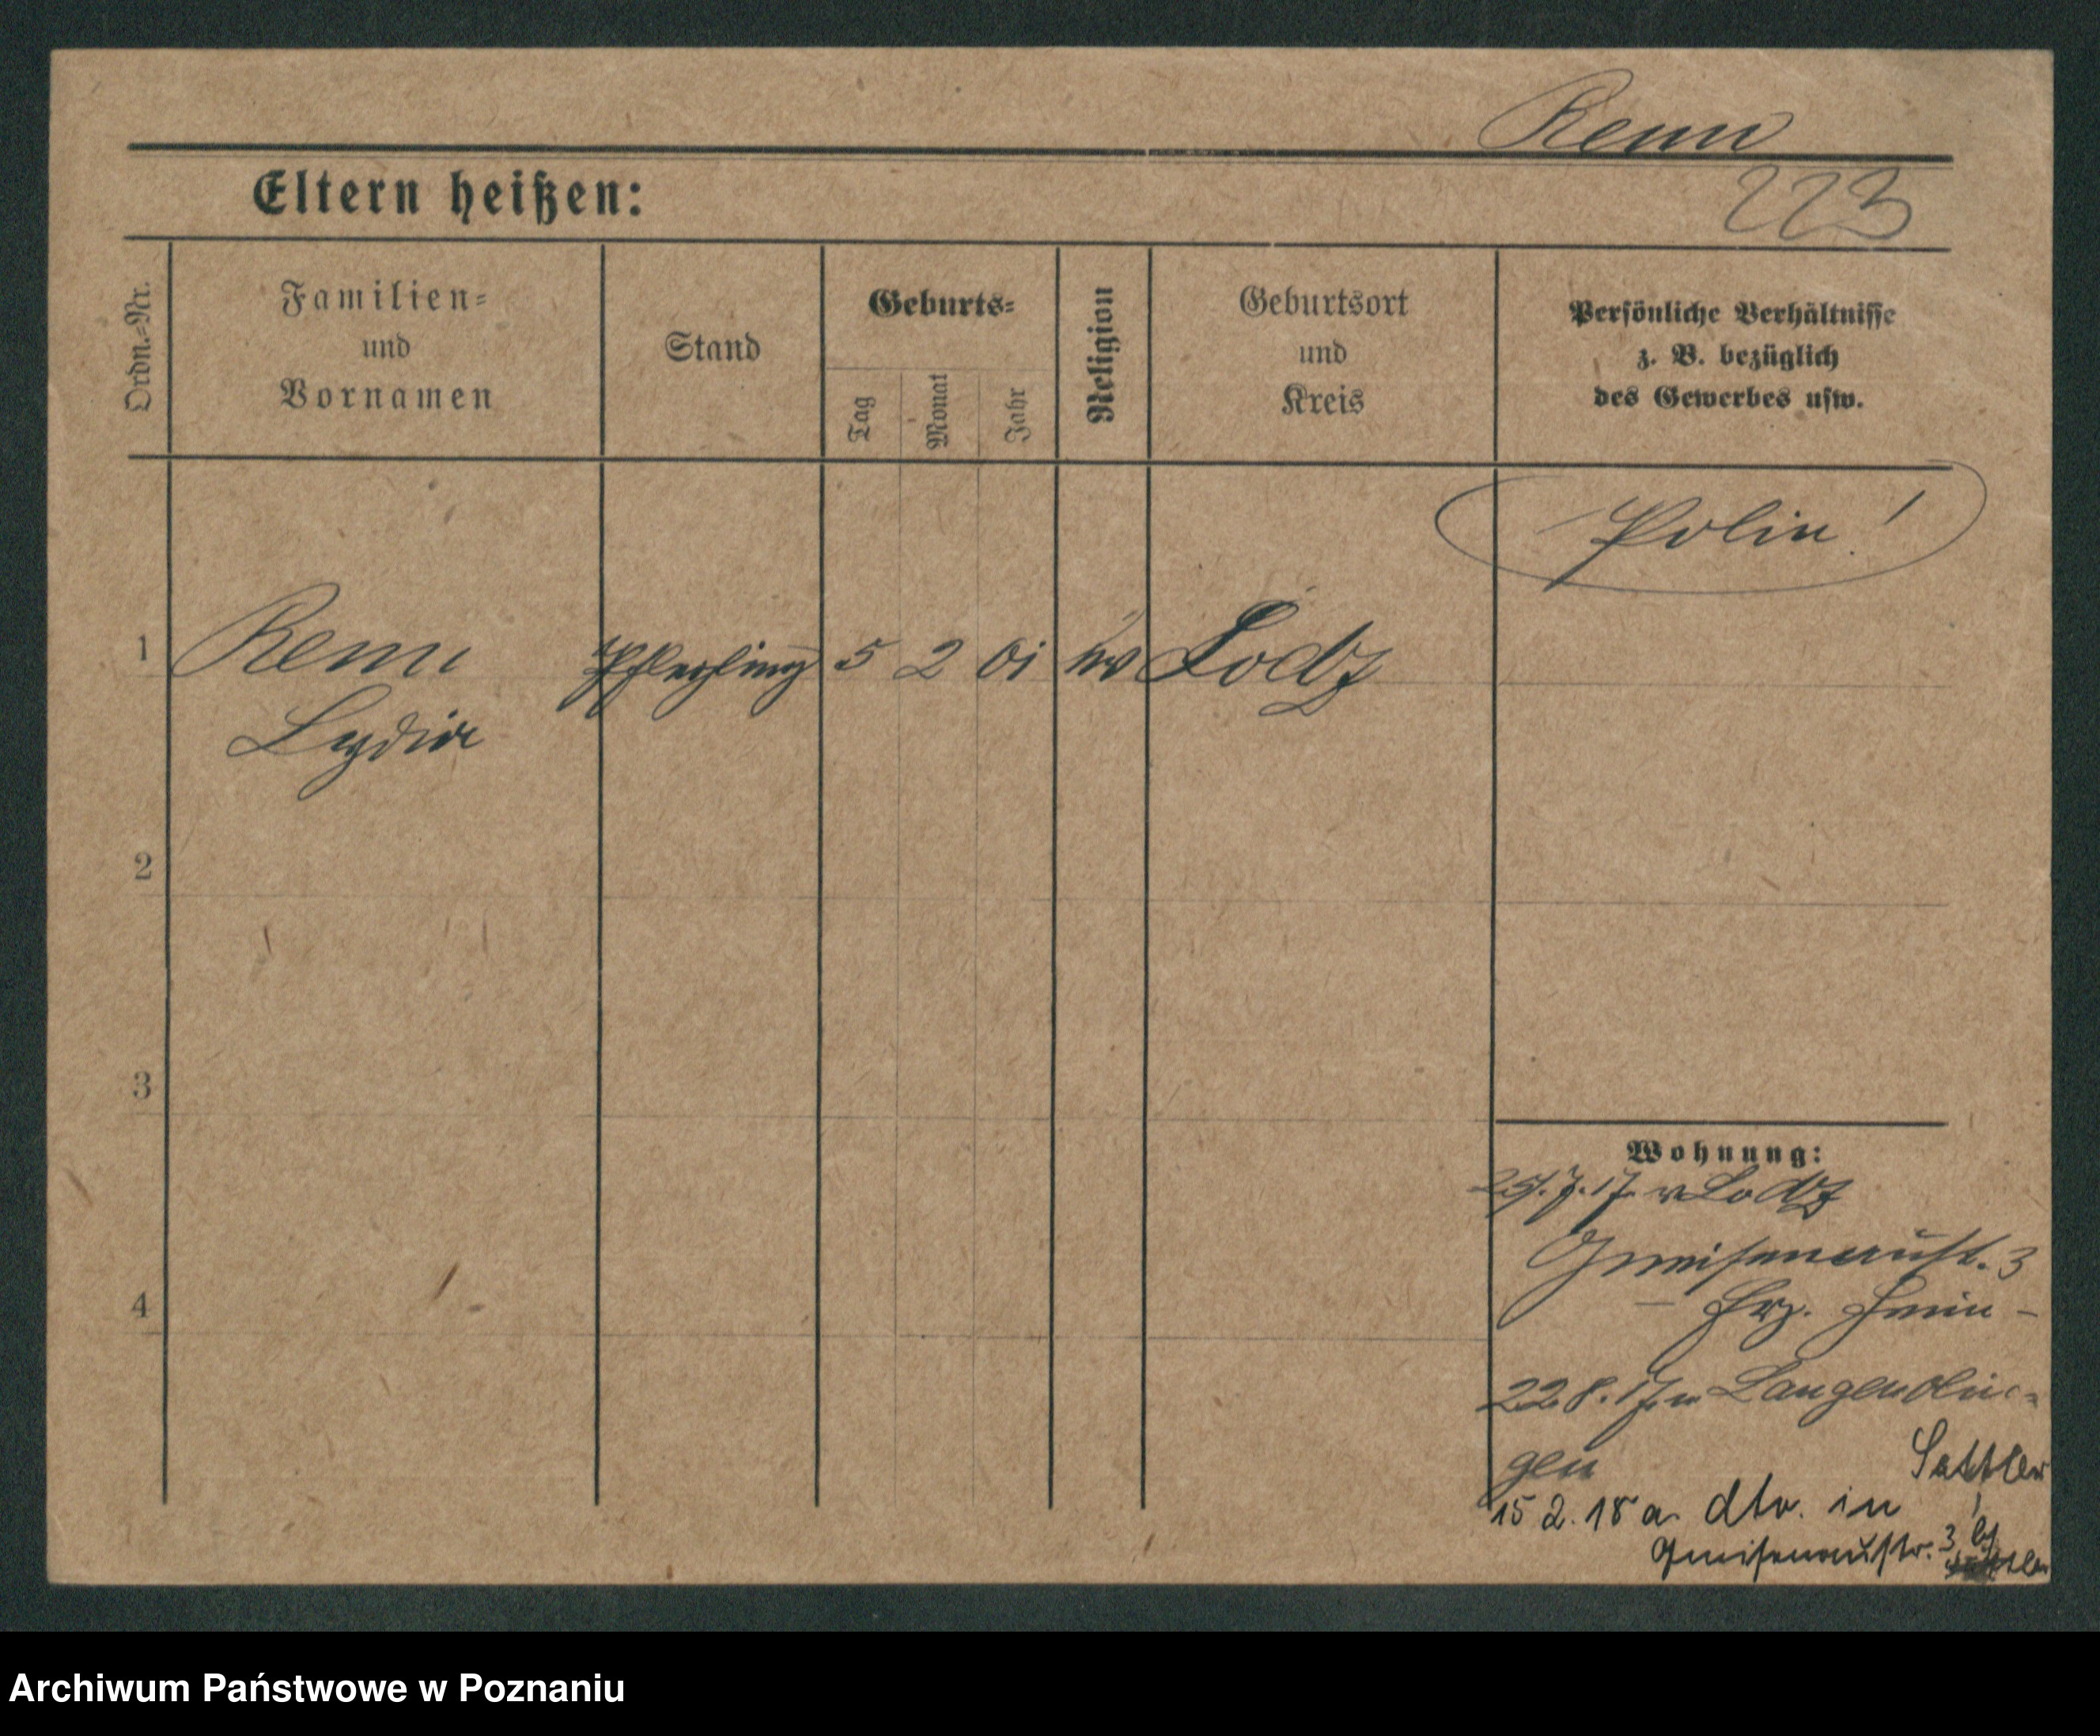 Renn
Eltern heißen:
223
Ordn.=Nr.
Familien=
und
Vornamen
Stand
Geburts=
Tag
Monat
Jahr
Religion
Geburtsort
und
Kreis
Persönliche Verhältnisse
z. B. bezüglich
des Gewerbes usw.
Polin!
1
Renn Pflegling 5 2 01 Lodz
Lydia
2
3
4
Wohnung:
25.7.17. v Lodz
Gneisenaustr. 3
22.8.17 n Langenolin=
gen
Sattler
15 2. 18 a. dto. in
Gneisenaustr. 3
Archiwum Państwowe w Poznaniu